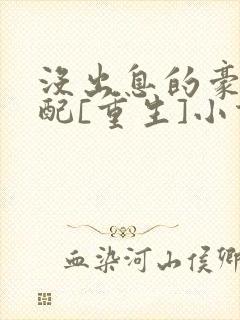 没出息的豪
配[重生]小
血染河山侯卿